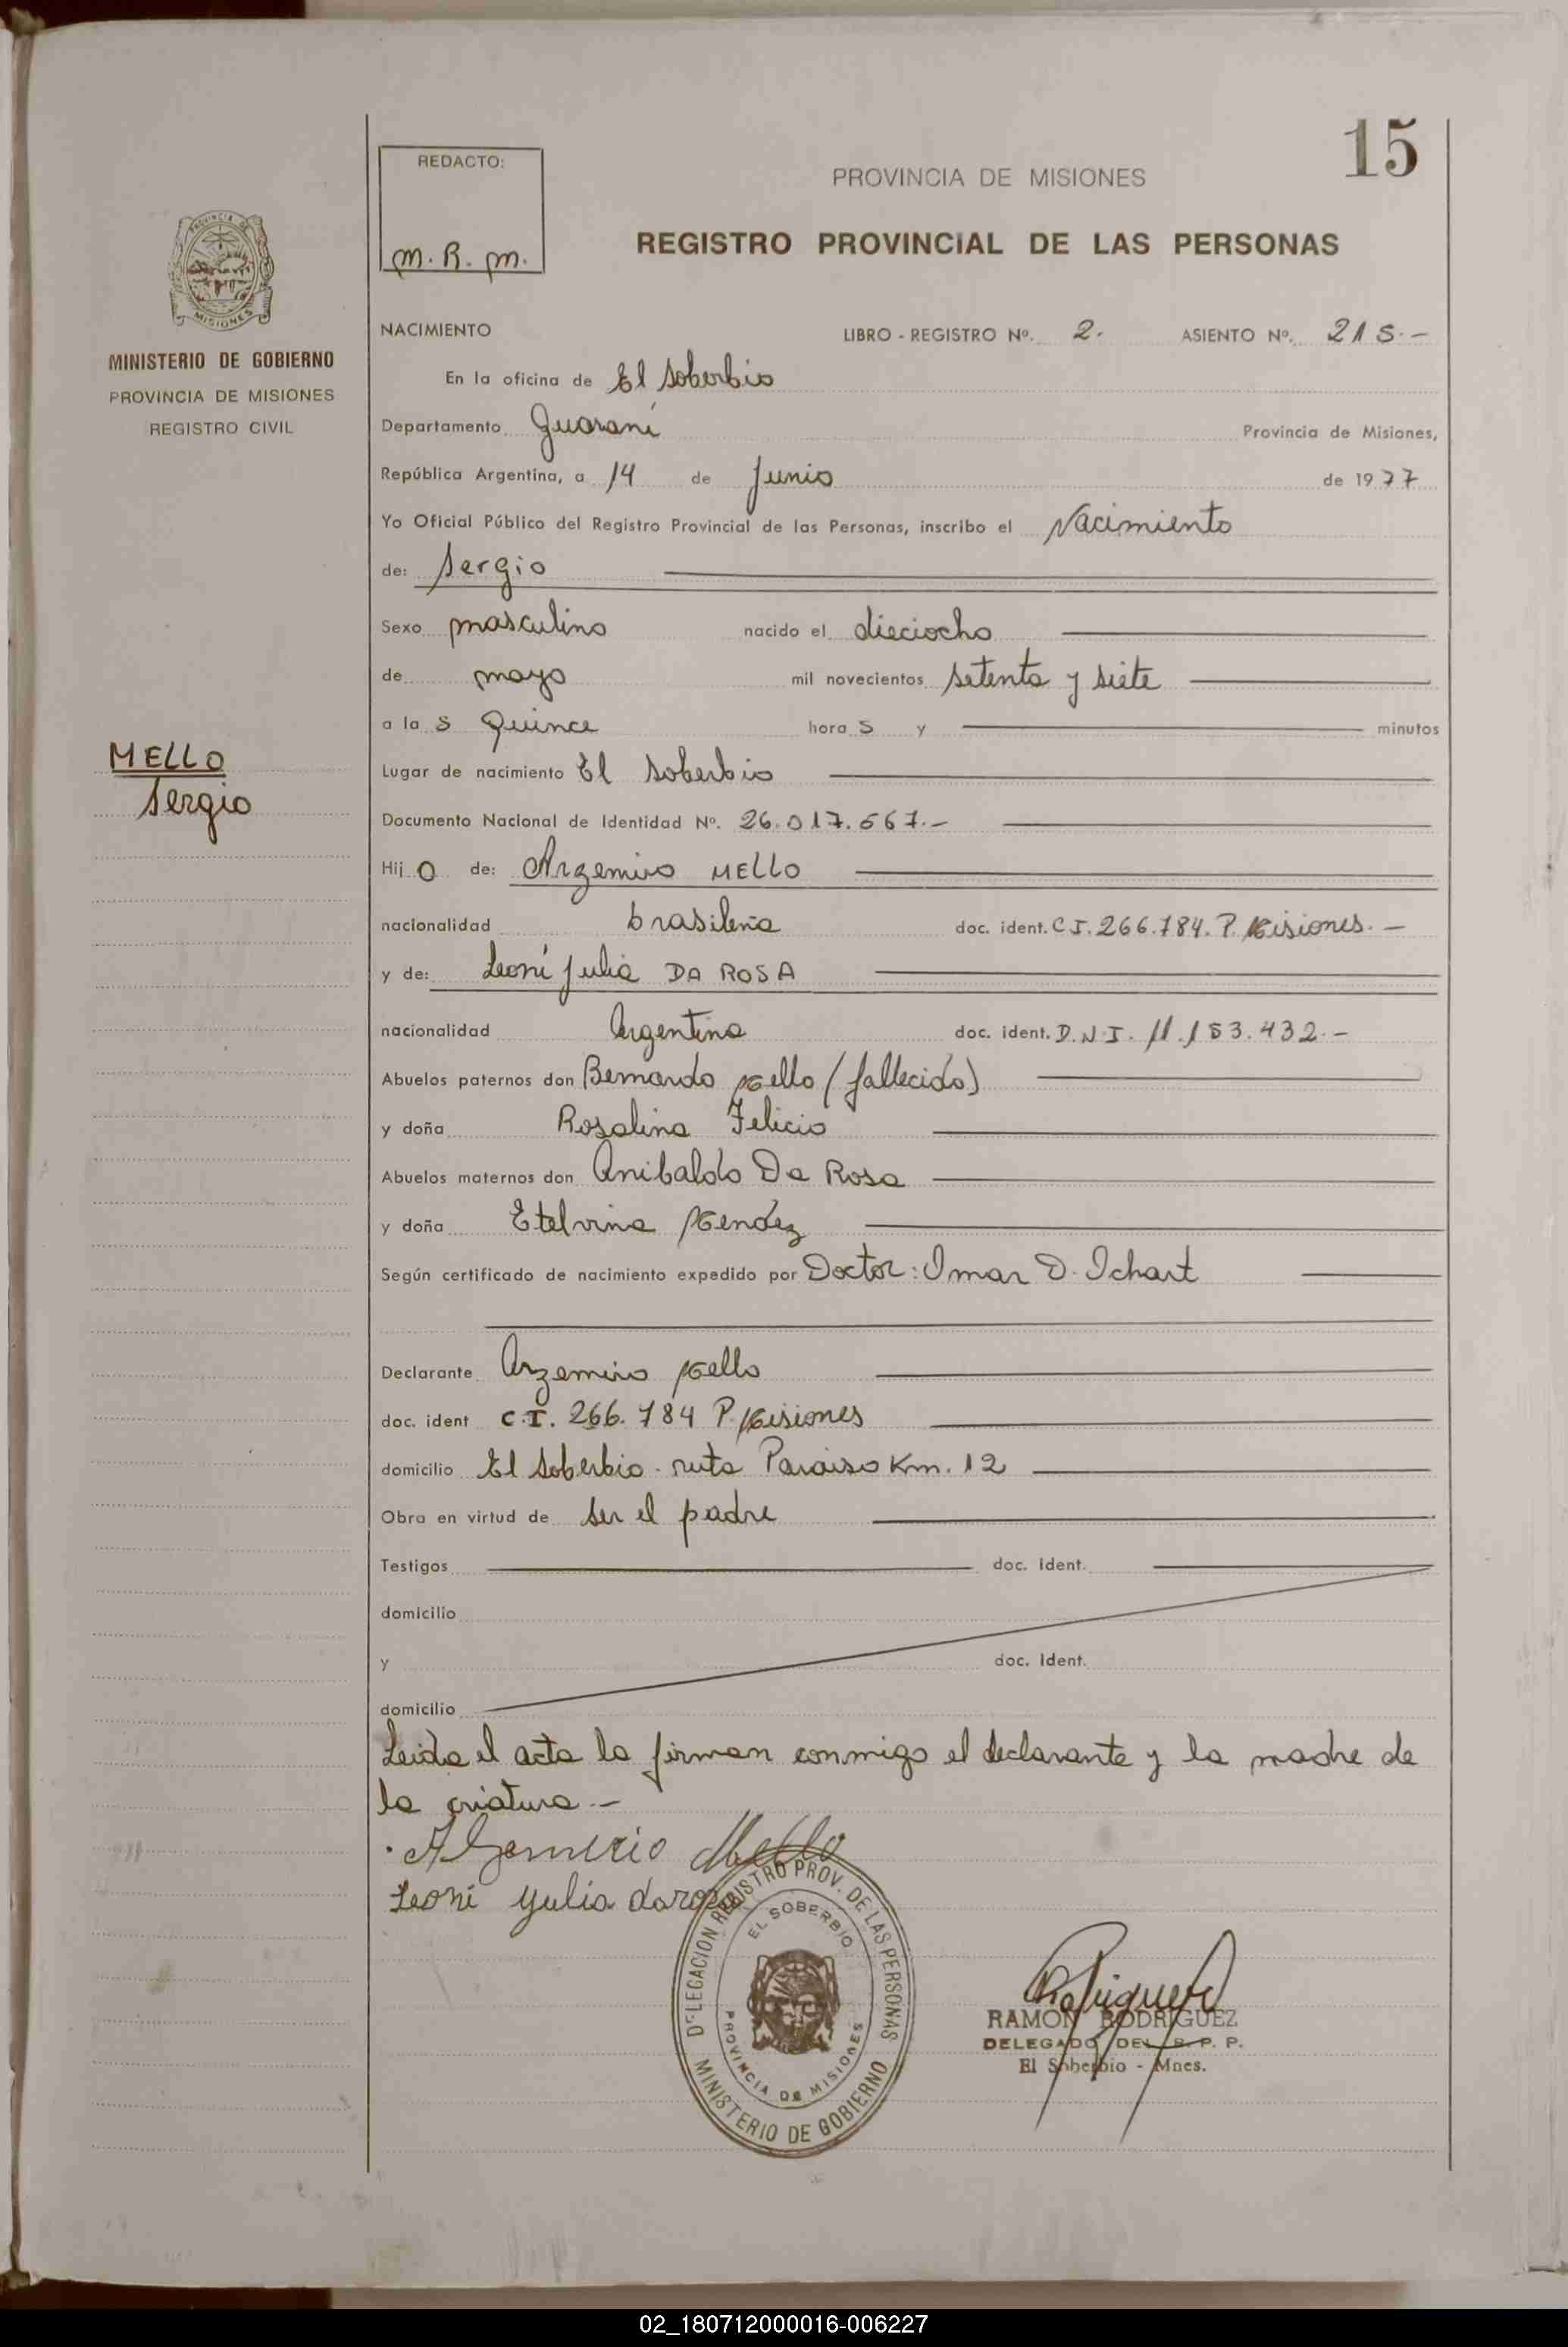 15
REDACTO:
M. R. M.
PROVINCIA DE MISIONES
REGISTRO PROVINCIAL DE LAS PERSONAS
PROVINCIA DE
MISIONES
MINISTERIO DE GOBIERNO
PROVINCIA DE MISIONES
REGISTRO CIVIL
MELLO
Sergio
NACIMIENTO LIBRO - REGISTRO Nº. 2. ASIENTO Nº. 215.-
En la oficina de El Soberbio
Departamento Guaraní Provincia de Misiones,
República Argentina, a 14 de Junio de 1977
Yo Oficial Público del Registro Provincial de las Personas, inscribo el Nacimiento
de: Sergio
Sexo masculino nacido el dieciocho
de mayo mil novecientos setenta y siete
a la s Quince hora s y minutos
Lugar de nacimiento El Soberbio
Documento Nacional de Identidad Nº. 26.017.567.-
Hij o de: Argemiro MELLO
nacionalidad brasileña doc. ident. C.I. 266.784. P. Misiones.-
y de: Leoní Julia DA ROSA
nacionalidad Argentina doc. ident. D.N.I. 11.153.432.-
Abuelos paternos don Bernardo Mello (fallecido)
y doña Rosalina Felicio
Abuelos maternos don Anibaldo Da Rosa
y doña Etelvina Mendez
Según certificado de nacimiento expedido por Doctor: Omar D. Ichart
Declarante Argemiro Mello
doc. ident C.I. 266.784 P. Misiones
domicilio El Soberbio - ruta Paraiso Km. 12
Obra en virtud de ser el padre
Testigos doc. ident.
domicilio
y doc. ident.
domicilio
Leida el acta la firman conmigo el declarante y la madre de
la criatura.-
Mello
Leoni Yulia darosa
DELEGACION REGISTRO PROV. DE LAS PERSONAS
EL SOBERBIO
PROVINCIA DE MISIONES
MINISTERIO DE GOBIERNO
Rodriguez
RAMON RODRIGUEZ
DELEGADO DEL R. P. P.
El Soberbio - Mnes.
02_180712000016-006227